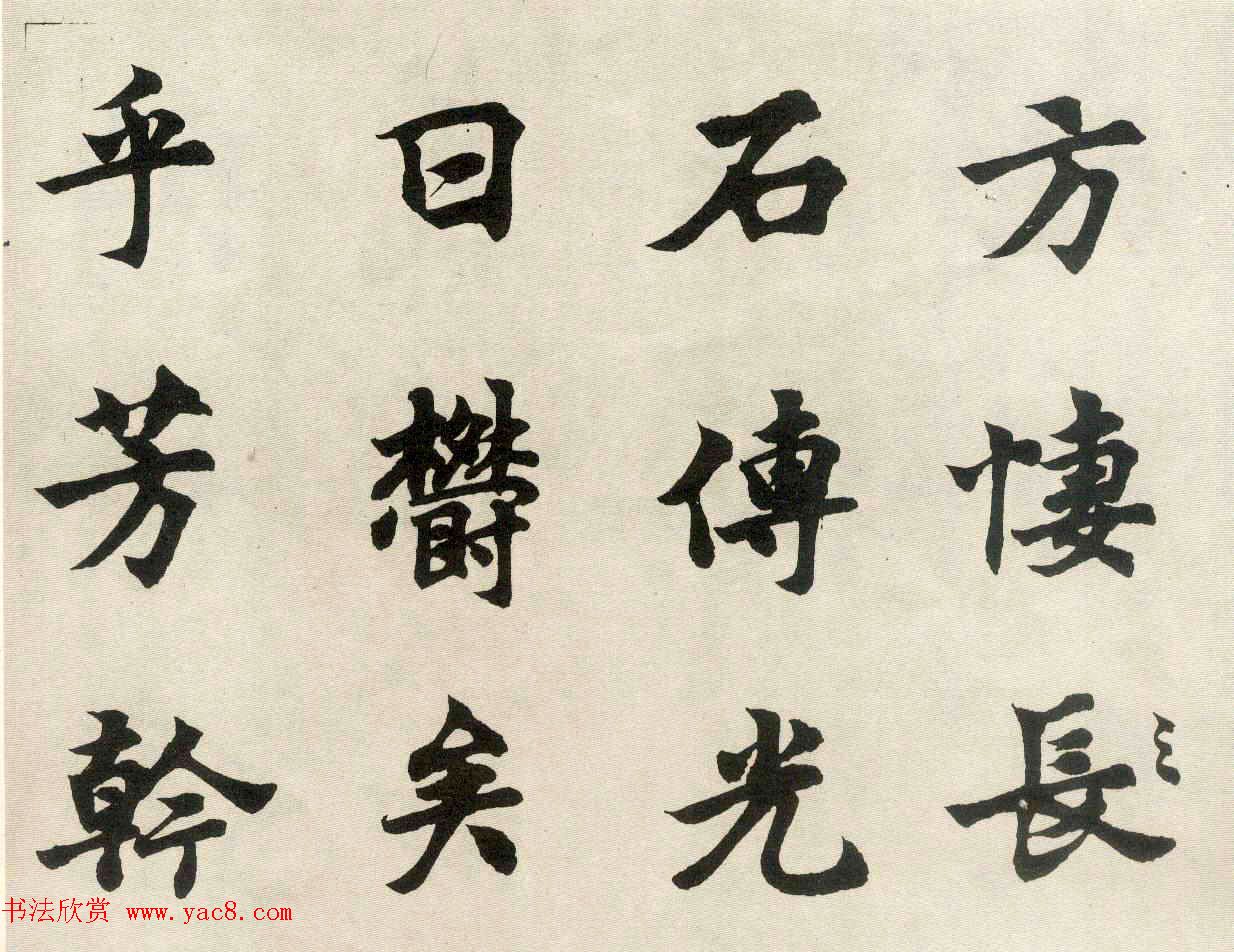 方悽長
石傳光
曰鬱矣
乎芳幹
书法欣赏 www.yac8.com